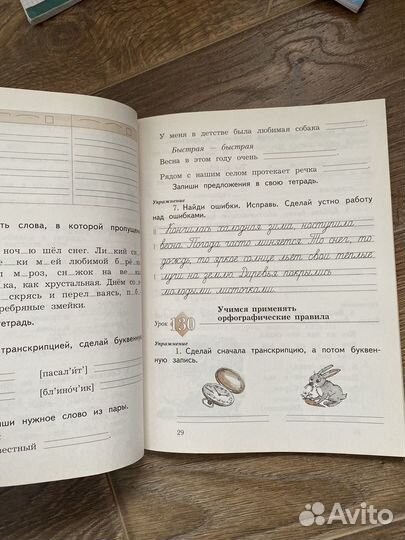 ть слова, в которой пропущен
ноч__ю шёл снег. Ли__кий сн
ки м__ей любимой б__рё__к
л м__роз, сн__жок на ве__
ка, как хрустальная. Днём со
скрясь и перел__ваясь, п__б
ребряные змейки.
тетрадь.
транскрипцией, сделай буквенну
[пасал'йт']
[бл'ино́ч'ик]
ши нужное слово из пары.
вестный
У меня в детстве была любимая собака
Быстрая — быстрая
Весна в этом году очень
Рядом с нашим селом протекает речка
Запиши предложения в свою тетрадь.
Упражнение
7. Найди ошибки. Исправь. Сделай устно работу
над ошибками.
Кончилась халодная зима, наступила
весна. Погода часто миняется. То снег, то
дождь, то яркое солнце льёт свои тёплые
лучи на землю. Деревья покрылись
молодыми листочками.
Урок 130
Учимся применять
орфографические правила
Упражнение
1. Сделай сначала транскрипцию, а потом буквен-
ную запись.
29
Avito